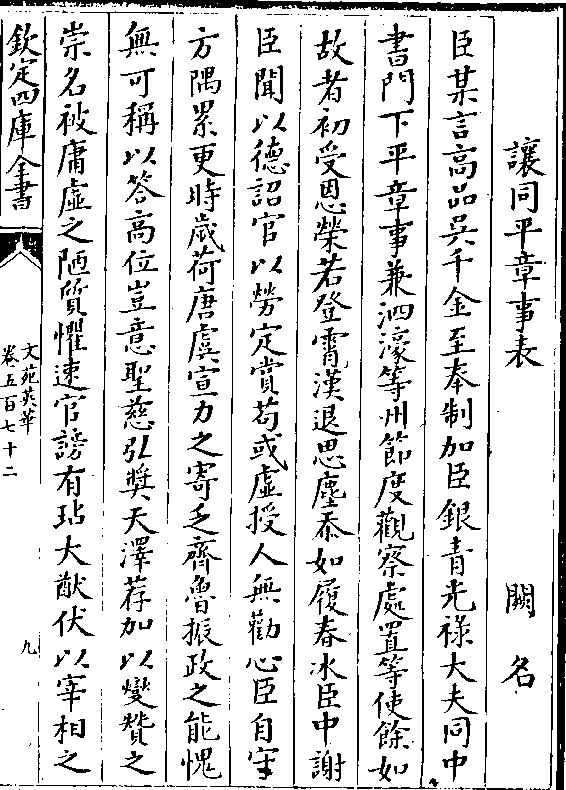 讓同平章事表 闕名
臣某言高品吳千金至奉制加臣銀青光祿大夫同中
書門下平章事兼泗濠等州節度觀察處置等使餘如
故者初受恩榮若登霄漢退思塵忝如履春冰臣中謝
臣聞以德詔官以勞定賞苟或虛授人無勸心臣自守
方隅累更時歲荷唐虞宣力之寄乏齊魯振政之能愧
無可稱以答高位豈意聖慈引奬天澤荐加以爕贊之
崇名被庸虛之陋質懼速官謗有玷大猷伏以宰相之
欽定四庫全書
文苑英華
卷五百七十二
九